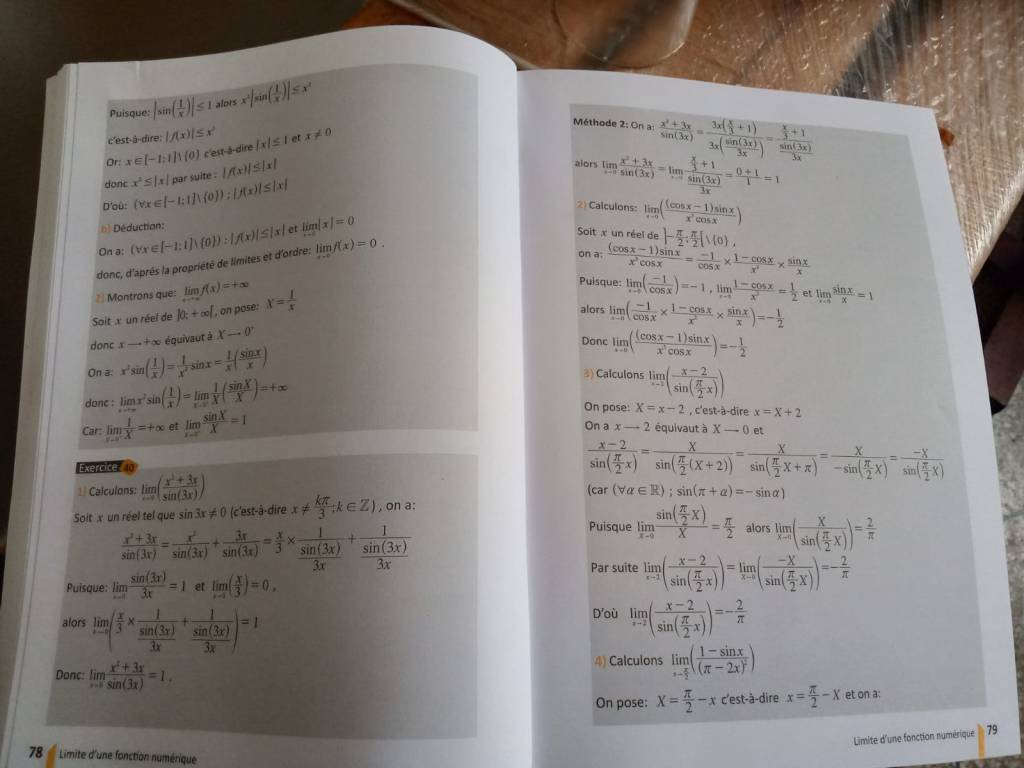 Puisque: |sin(1/x)| ≤ 1 alors x²|sin(1/x)| ≤ x²
c'est-à-dire: |f(x)| ≤ x²
Or: x ∈ [-1;1]\{0} c'est-à-dire |x| ≤ 1 et x ≠ 0
donc x² ≤ |x| par suite : |f(x)| ≤ |x|
D'où: (∀x ∈ [-1;1]\{0}) ; |f(x)| ≤ |x|
b) Déduction:
On a: (∀x ∈ [-1;1]\{0}) : |f(x)| ≤ |x| et lim x→0 |x| = 0
donc, d'aprés la propriété de limites et d'ordre: lim x→0 f(x) = 0 .
2) Montrons que: lim x→+∞ f(x) = +∞
Soit x un réel de ]0; +∞[, on pose: X = 1/x
donc x → +∞ équivaut à X → 0⁺
On a: x² sin(1/x) = 1/x² sin x = 1/x (sin x/x)
donc : lim x→+∞ x² sin(1/x) = lim X→0⁺ 1/X (sin X/X) = +∞
Car: lim X→0⁺ 1/X = +∞ et lim X→0⁺ sin X/X = 1
Exercice 40
1) Calculons: lim x→0 ((x² + 3x)/sin(3x))
Soit x un réel tel que sin 3x ≠ 0 (c'est-à-dire x ≠ kπ/3 ; k ∈ ℤ), on a:
(x² + 3x)/sin(3x) = x²/sin(3x) + 3x/sin(3x) = x/3 × 1/(sin(3x)/3x) + 1/(sin(3x)/3x)
Puisque: lim x→0 sin(3x)/3x = 1 et lim x→0 (x/3) = 0 ,
alors lim x→0 (x/3 × 1/(sin(3x)/3x) + 1/(sin(3x)/3x)) = 1
Donc: lim x→0 (x² + 3x)/sin(3x) = 1 .
78 Limite d'une fonction numérique
Méthode 2: On a: (x² + 3x)/sin(3x) = 3x(x/3 + 1)/(3x(sin(3x)/3x)) = (x/3 + 1)/(sin(3x)/3x)
alors lim x→0 (x² + 3x)/sin(3x) = lim x→0 (x/3 + 1)/(sin(3x)/3x) = (0 + 1)/1 = 1
2) Calculons: lim x→0 ((cos x − 1) sin x/(x³ cos x))
Soit x un réel de ]−π/2 ; π/2[ \ {0} ,
on a: (cos x − 1) sin x/(x³ cos x) = −1/cos x × (1 − cos x)/x² × sin x/x
Puisque: lim x→0 (−1/cos x) = −1 , lim x→0 (1 − cos x)/x² = 1/2 et lim x→0 sin x/x = 1
alors lim x→0 (−1/cos x × (1 − cos x)/x² × sin x/x) = −1/2
Donc lim x→0 ((cos x − 1) sin x/(x³ cos x)) = −1/2
3) Calculons lim x→2 ((x − 2)/sin(π/2 x))
On pose: X = x − 2 , c'est-à-dire x = X + 2
On a x → 2 équivaut à X → 0 et
(x − 2)/sin(π/2 x) = X/sin(π/2 (X + 2)) = X/sin(π/2 X + π) = X/−sin(π/2 X) = −X/sin(π/2 X)
(car (∀α ∈ ℝ) ; sin(π + α) = −sin α)
Puisque lim X→0 sin(π/2 X)/X = π/2 alors lim X→0 (X/sin(π/2 X)) = 2/π
Par suite lim x→2 ((x − 2)/sin(π/2 x)) = lim X→0 (−X/sin(π/2 X)) = −2/π
D'où lim x→2 ((x − 2)/sin(π/2 x)) = −2/π
4) Calculons lim x→π/2 ((1 − sin x)/(π − 2x)²)
On pose: X = π/2 − x c'est-à-dire x = π/2 − X et on a:
Limite d'une fonction numérique 79